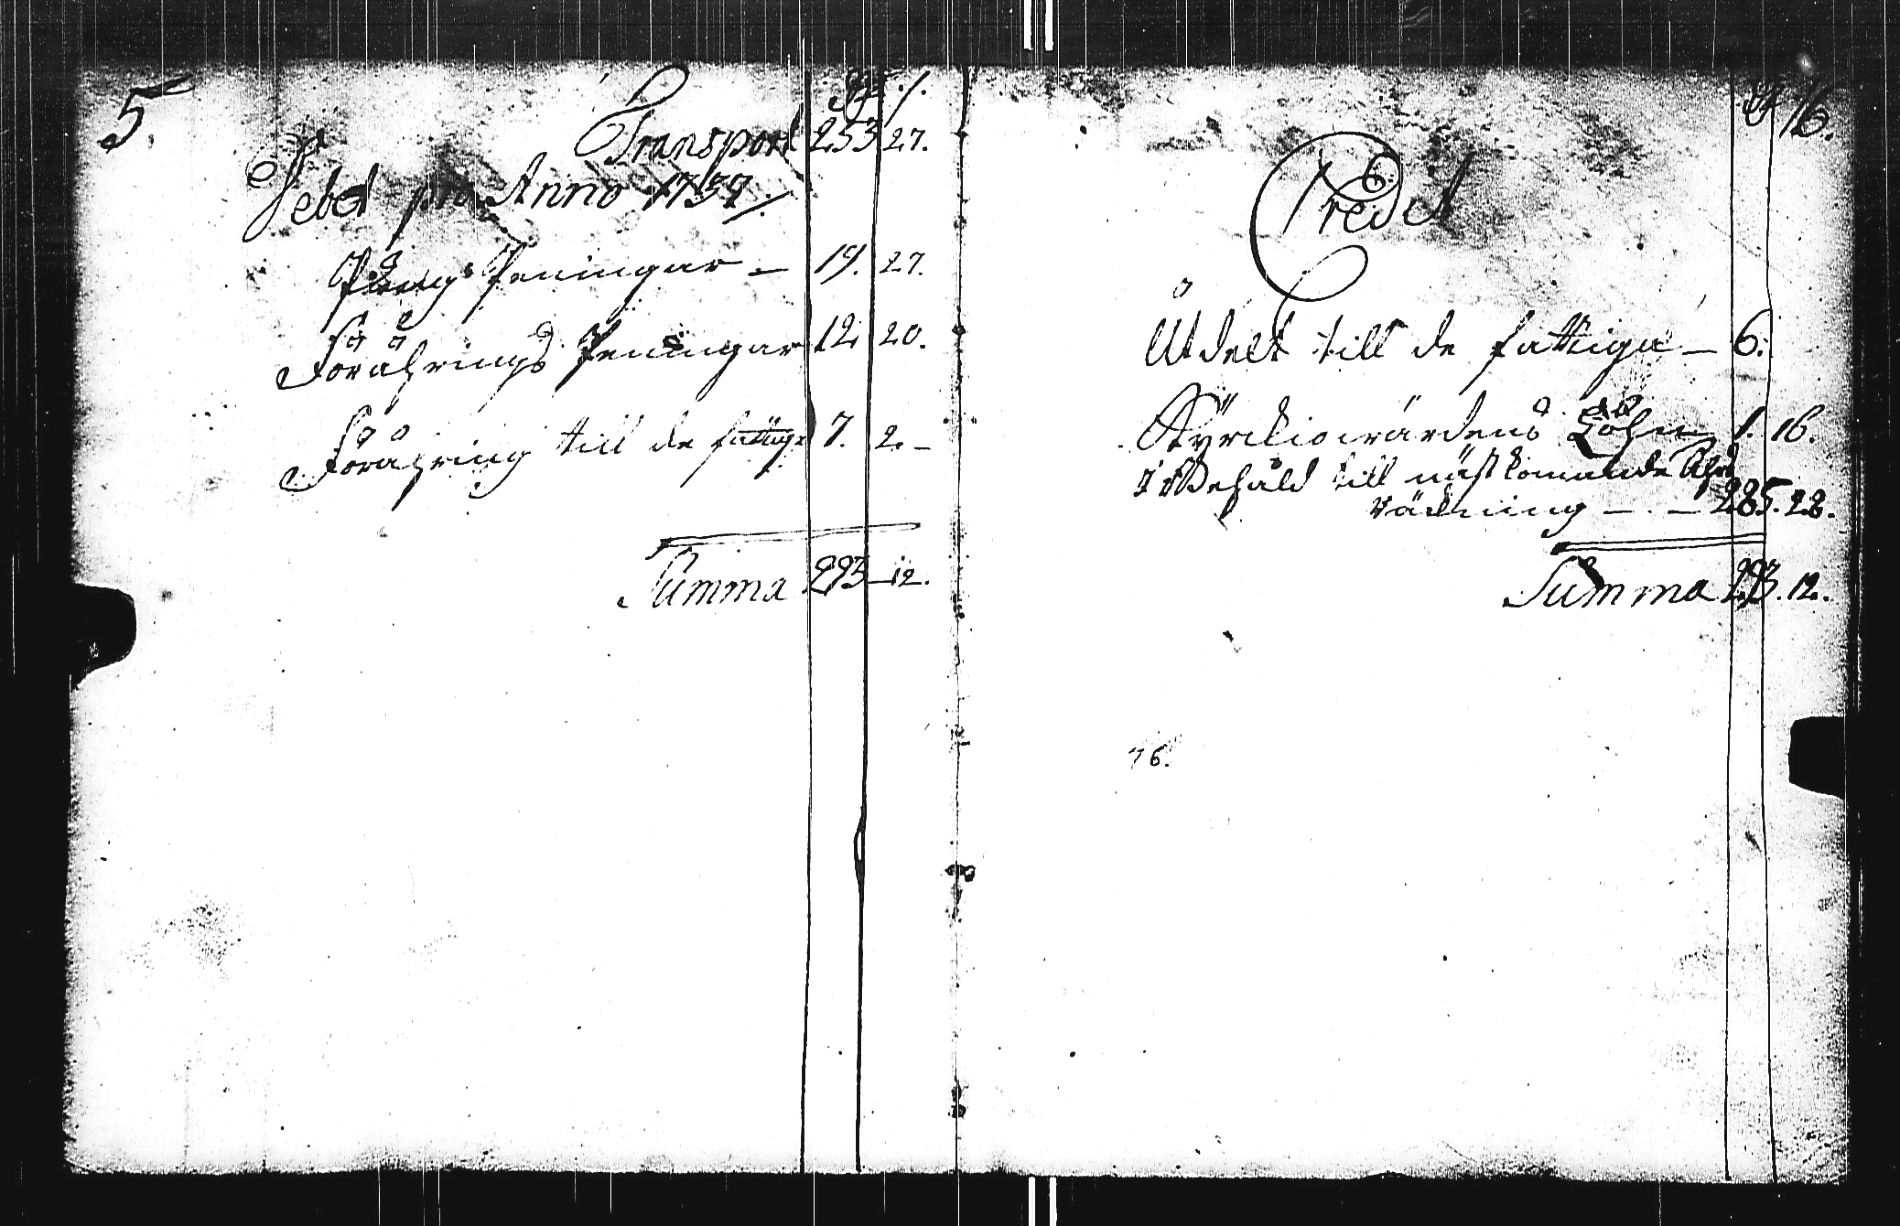 5.
Transport 253 27.
Debet pro Anno 1737
Pungs Peningar — 19. 27.
Förährings Peningar 12. 20.
Förähring till de fattige 7. 2. —
Summa 293 — 12.
16.
Credit
Utdelt till de fattiga — 6.
Kyrckiowärdens Löhn 1. 16.
Behåld till nästkommande Åhrs
räkning — . — 285. 28.
Summa 293. 12.
76.